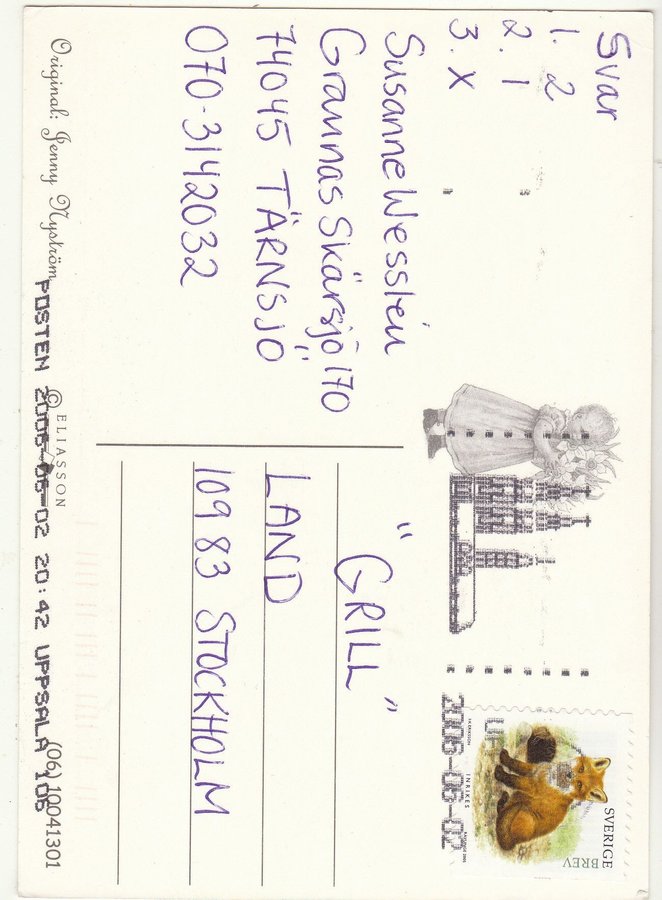 Svar
1. 2
2. 1
3. X
Susanne Wesslén
Grannäs Skärsjö 170
74045 TÄRNSJÖ
070-3142032
"GRILL"
LAND
109 83 STOCKHOLM
SVERIGE
BREV
INRIKES
2006-06-02
Original: Jenny Nyström
© ELIASSON
POSTEN 2006-06-02 20:42 UPPSALA 106
(06) 10041301